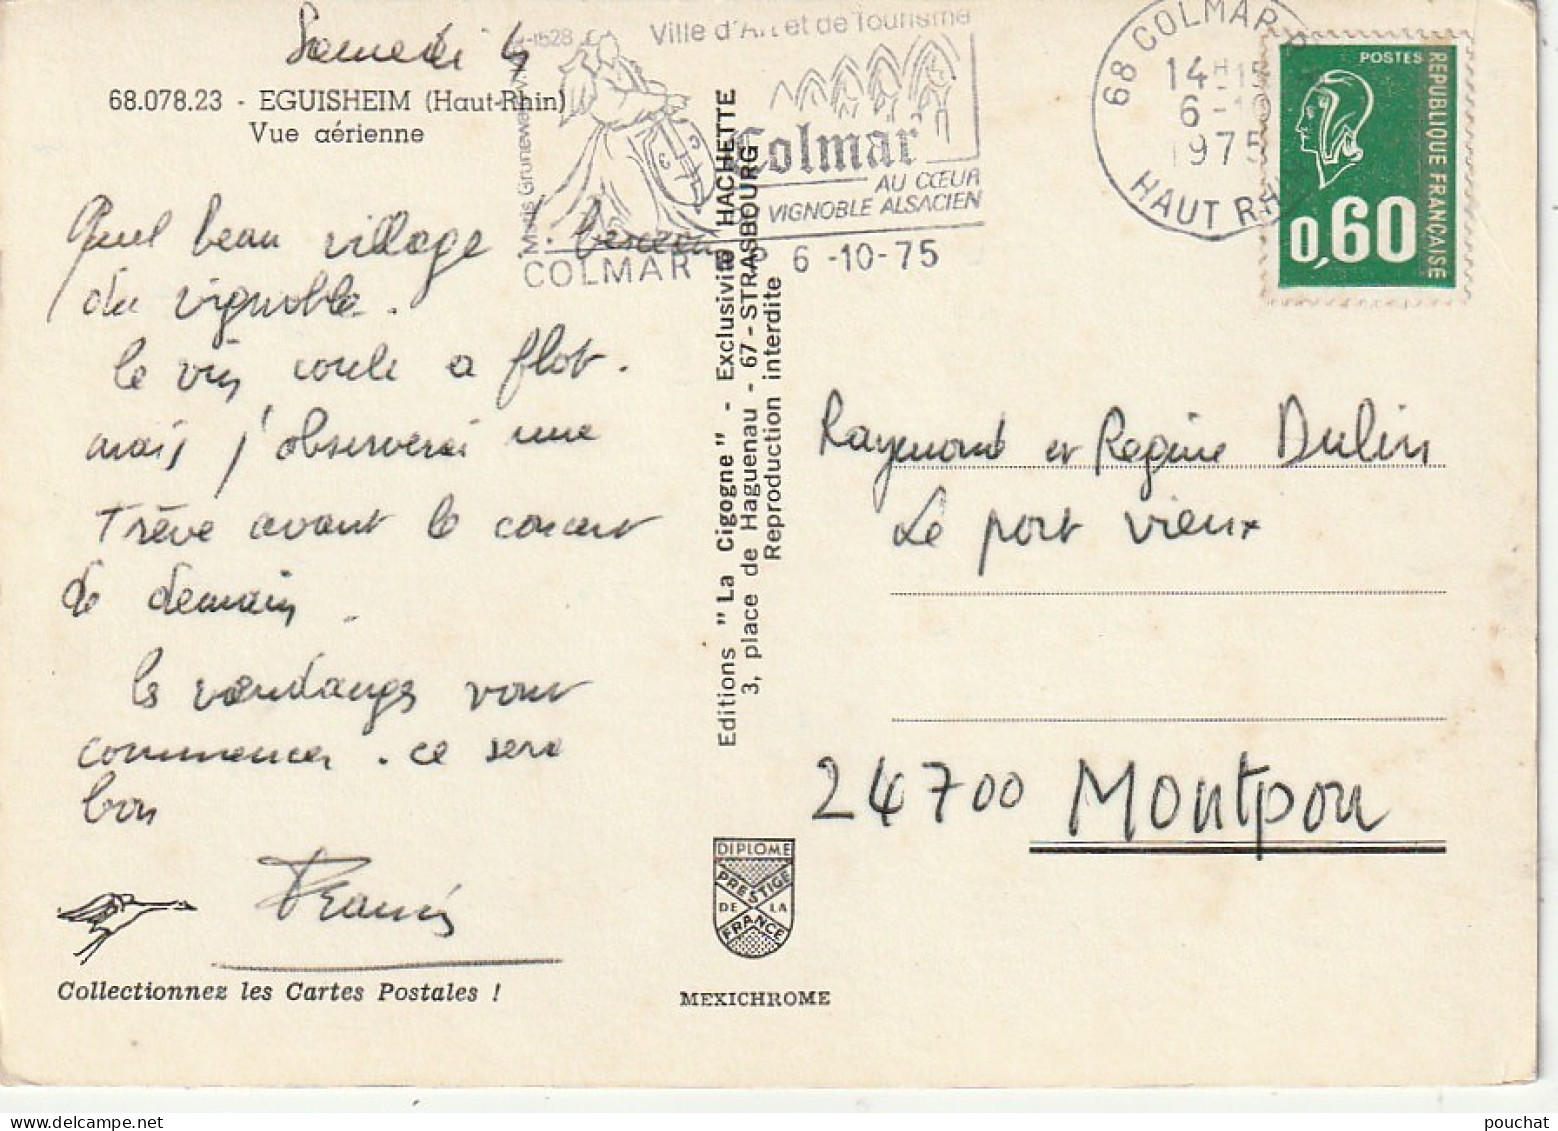 Samedi 4
68.078.23 - EGUISHEIM (Haut-Rhin)
Vue aérienne
Quel beau village
du vignoble.
le vin coule a flot.
mais j'observerai une
Trêve avant le concert
de demain.
les vendanges vont
commencer. ce sera
bon
Francis
Collectionnez les Cartes Postales !
Ville d'Art et de Tourisme
Colmar
AU CŒUR
VIGNOBLE ALSACIEN
COLMAR
6 -10-75
Editions "La Cigogne" - Exclusivité HACHETTE
3, place de Haguenau - 67 - STRASBOURG
Reproduction interdite
DIPLOME
PRESTIGE
DE LA
FRANCE
MEXICHROME
68 COLMAR
14H15
6-10
1975
HAUT RHIN
POSTES
REPUBLIQUE FRANÇAISE
0,60
Raymond et Regine Dulin
Le port vieux
24700 Montpon
pouchat